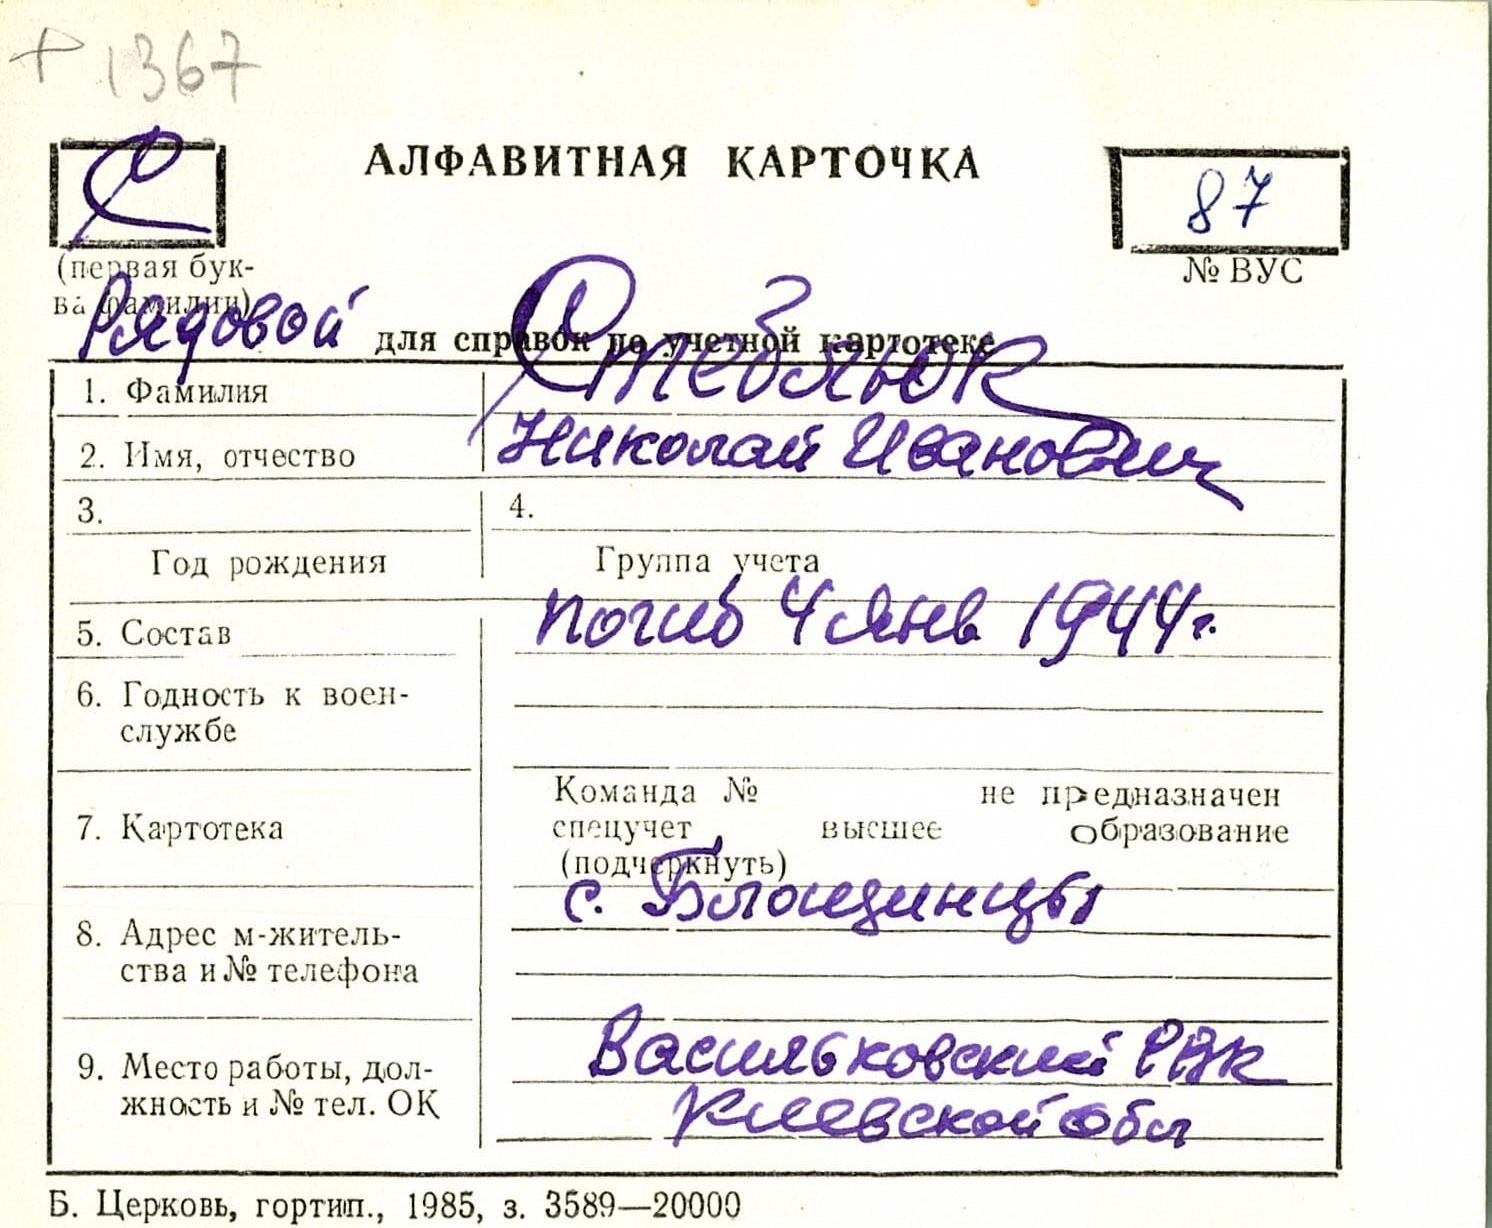 + 1367
С
АЛФАВИТНАЯ КАРТОЧКА
87
(первая бук-
ва фамилии)
№ ВУС
Рядовой
для справок по учетной картотеке
1. Фамилия Стеблюк
2. Имя, отчество Николай Иванович
3. 4.
Год рождения Группа учета
5. Состав погиб 4 янв 1944 г.
6. Годность к воен-
службе
Команда № не предназначен
7. Картотека спецучет высшее образование
(подчеркнуть)
с. Блощинцы
8. Адрес м-житель-
ства и № телефона
Васильковский РВК
9. Место работы, дол-
жность и № тел. ОК Киевской обл
Б. Церковь, гортип., 1985, з. 3589—20000